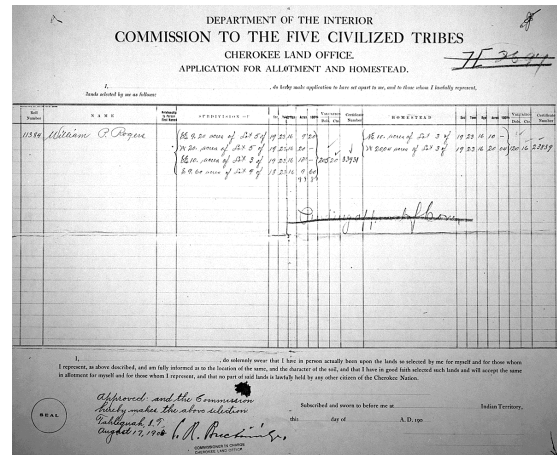 DEPARTMENT OF THE INTERIOR
COMMISSION TO THE FIVE CIVILIZED TRIBES
CHEROKEE LAND OFFICE.
APPLICATION FOR ALLOTMENT AND HOMESTEAD.
I, , do hereby make application to have set apart to me, and to those whom I lawfully represent,
lands selected by me as follows:
Roll Number NAME Relationship to Person First Named SUBDIVISION OF Sec. Twp. Rge. Acres 100th Valuation Dols. Cts. Certificate Number HOMESTEAD Sec. Twp. Rge. Acres 100th Valuation Dols. Cts. Certificate Number
11384 William P. Rogers 9.20 acres of Lot 5 of 19 23 16 9 20 10 acres of Lot 3 of 19 23 16 10 -
W 20 acres of Lot 5 of 19 23 16 20 - acres of Lot 3 of 19 23 16 20 120 16 23839
10 acres of Lot 3 of 19 23 16 10 - 205 20 33938
E 9.60 acres of Lot 4 of 23 16 9 60
Pending approval of
I, , do solemnly swear that I have in person actually been upon the lands so selected by me for myself and for those whom
I represent, as above described, and am fully informed as to the location of the same, and the character of the soil, and that I have in good faith selected such lands and will accept the same
in allotment for myself and for those whom I represent, and that no part of said lands is lawfully held by any other citizen of the Cherokee Nation.
Approved and the Commission
hereby makes the above selection
Tahlequah, I.T.
August 17, 190
SEAL
Subscribed and sworn to before me at Indian Territory,
this day of A. D. 190
COMMISSIONER IN CHARGE
CHEROKEE LAND OFFICE